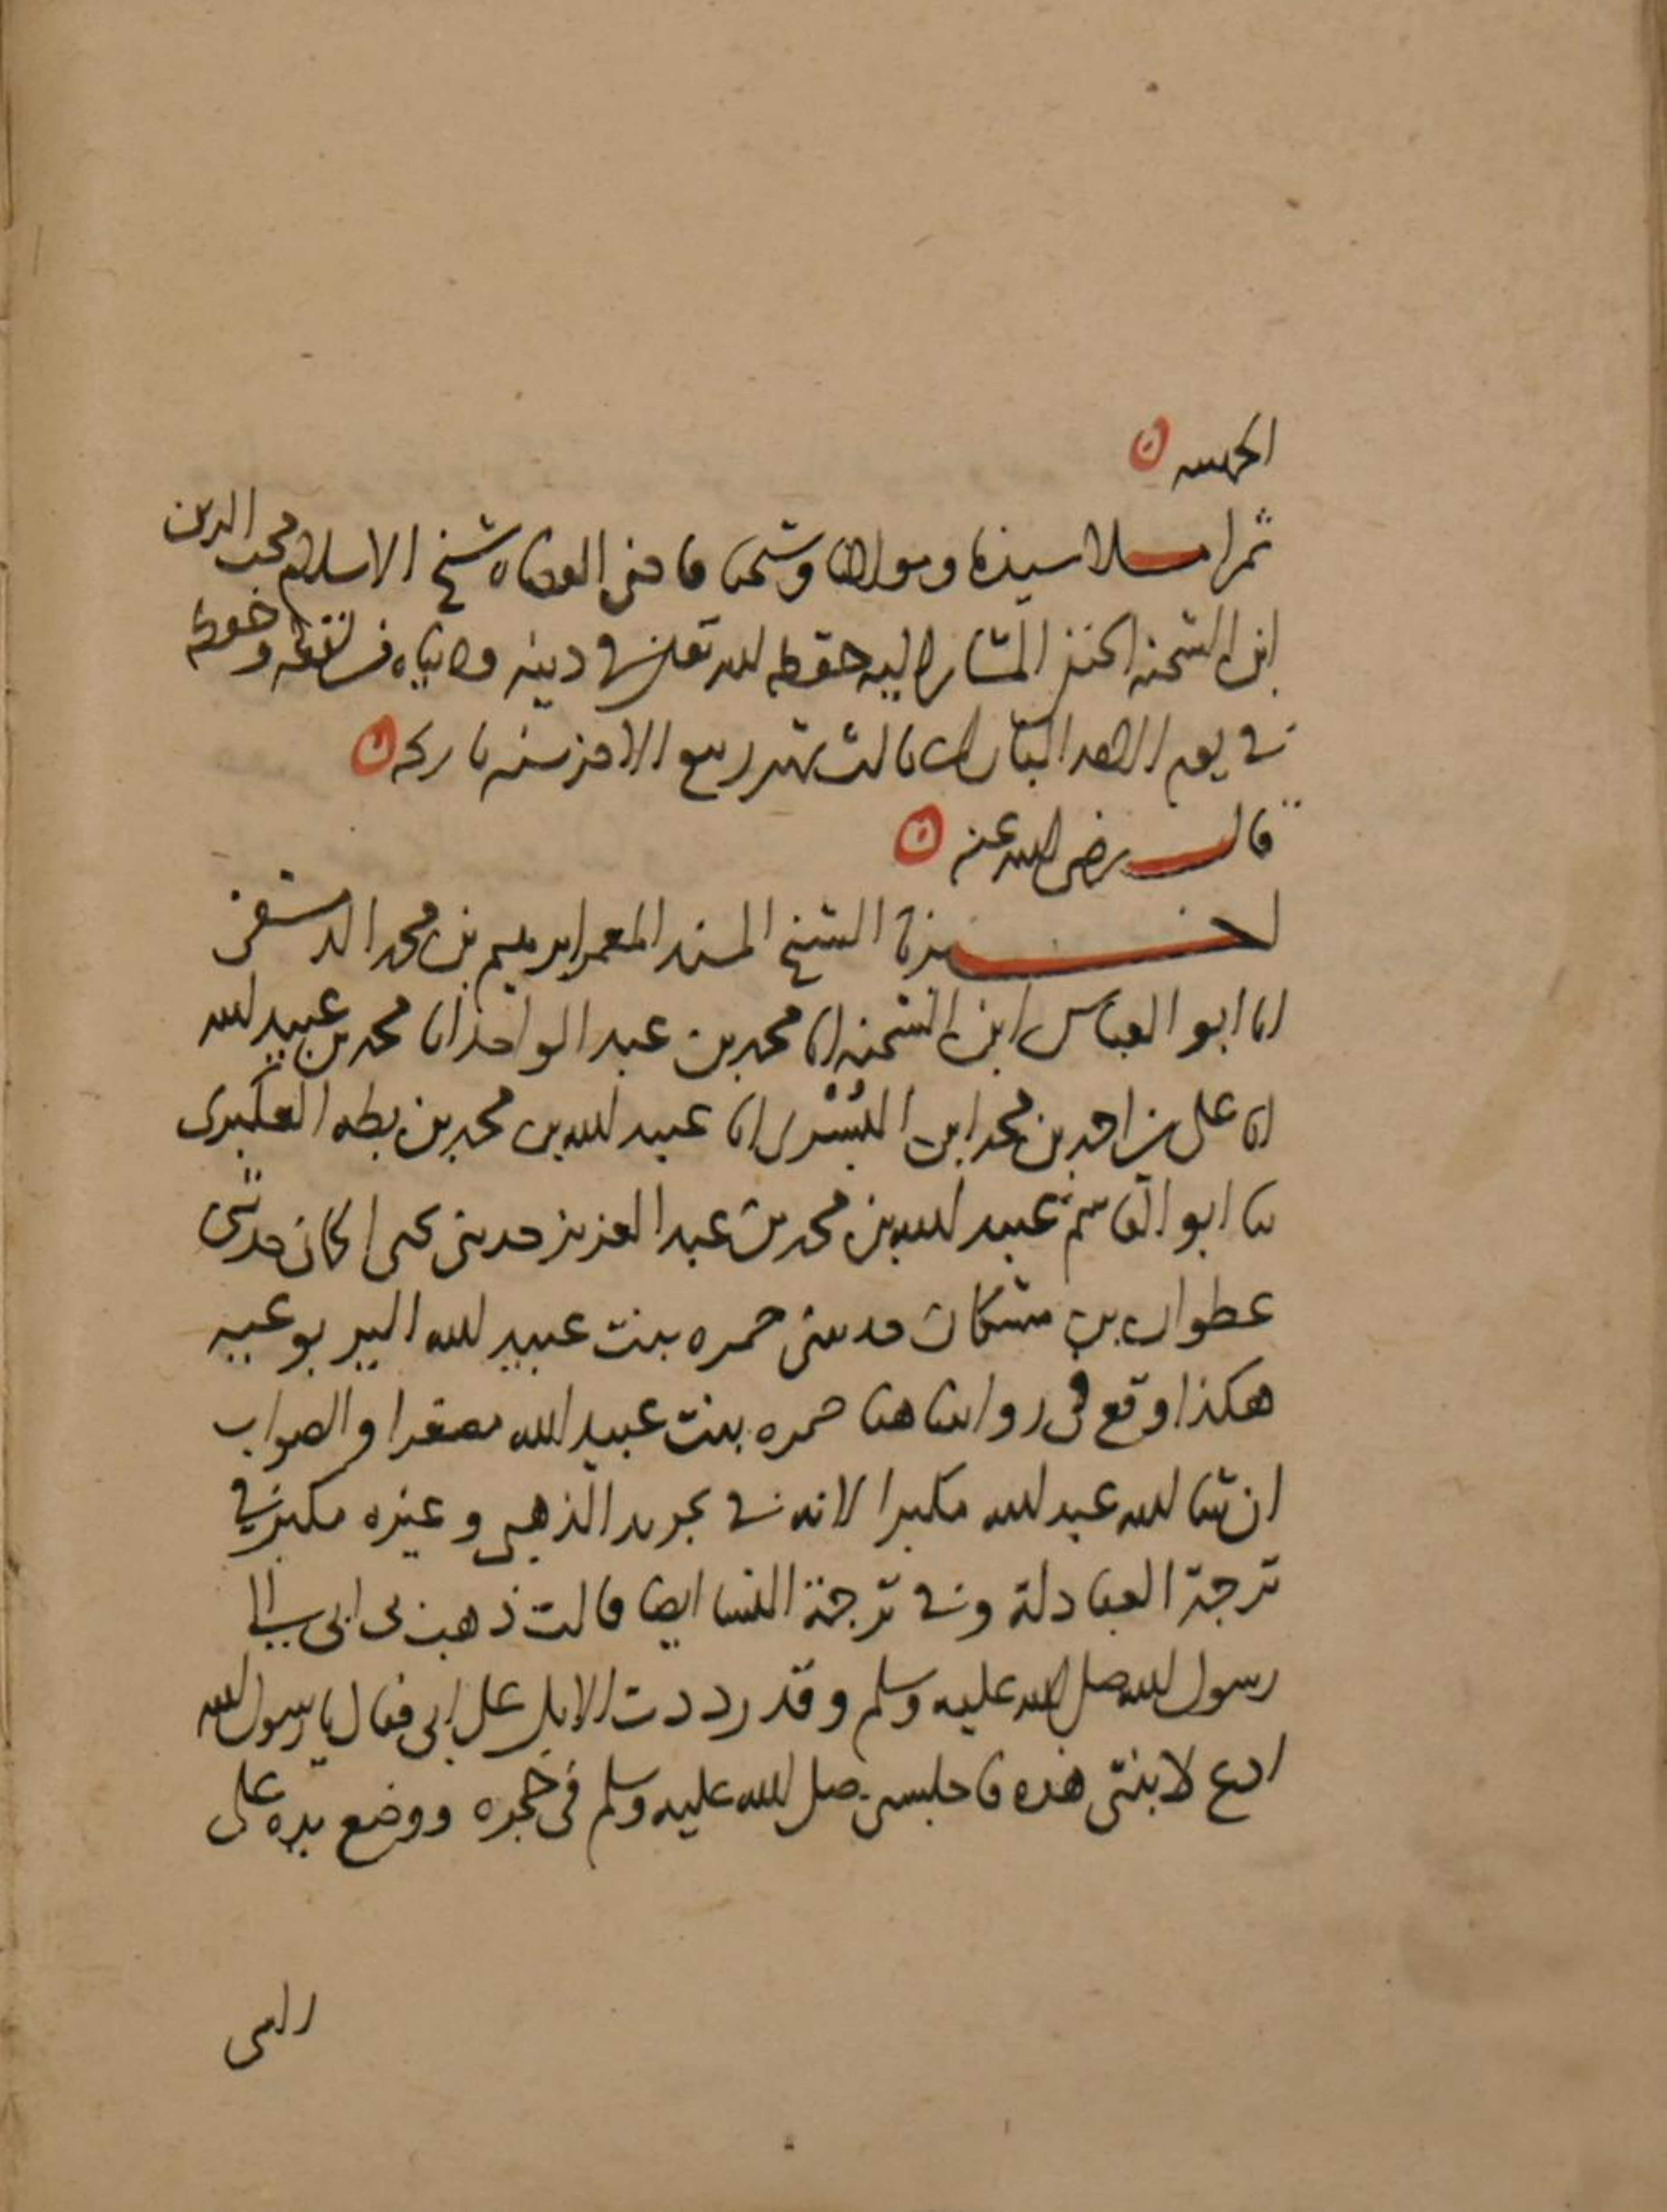 الحسنه
ثم املا سيدنا ومولانا وشيخنا قاضي القضاه شيخ الاسلام محب الدين
ابن الشحنه الحنفي المشار اليه حفظه الله تعالى في دينه ودنياه من لفظه وحفظه
في يوم الاحد المبارك ثالث شهر ربيع الاخر سنه تاريخه
قال رضي الله عنه
اخبرنا الشيخ المسند المعمر ابرهيم بن محمد الدمشقي
انا ابو العباس ابن الشحنه انا محمد بن عبد الواحد انا محمد بن عبيد الله
انا علي بن احمد بن محمد ابن البُسْري انا عبيد الله بن محمد بن بطه العكبري
ثنا ابو القاسم عبيد الله بن محمد بن عبد العزيز حدثني يحيى الحماني حدثني
عطوان بن مشكان حدثتني حمره بنت عبيد الله اليربوعيه
هكذا وقع في روايتنا هنا حمره بنت عبيد الله مصغرا والصواب
ان شا الله عبد الله مكبرا لانه في تجريد الذهبي وغيره مكبر في
ترجمة العبادلة وفي ترجمة النسا ايضا قالت ذهب بي ابي الى
رسول الله صلى الله عليه وسلم وقد رددت الابل على ابي فقال يا رسول الله
ادع لابنتي هذه فاجلسني صلى الله عليه وسلم في حجره ووضع يده على
راسي